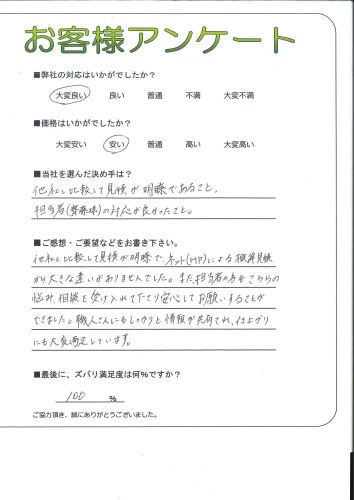 お客様アンケート
■弊社の対応はいかがでしたか？
大変良い 良い 普通 不満 大変不満
■価格はいかがでしたか？
大変安い 安い 普通 高い 大変高い
■当社を選んだ決め手は？
他社と比較して見積が明瞭であること。
担当者(齊藤様)の対応が良かったこと。
■ご感想・ご要望などをお書き下さい。
他社と比較して見積が明瞭で、ネット(HP)による概算見積
から大きな違いがありませんでした。また、担当者の方もこちらの
悩み、相談を受け入れて下さり安心してお願いすることが
できました。職人さんにもしっかりと情報が共有され、仕上がり
にも大変満足しています。
■最後に、ズバリ満足度は何%ですか？
100 %
ご協力頂き、誠にありがとうございました。